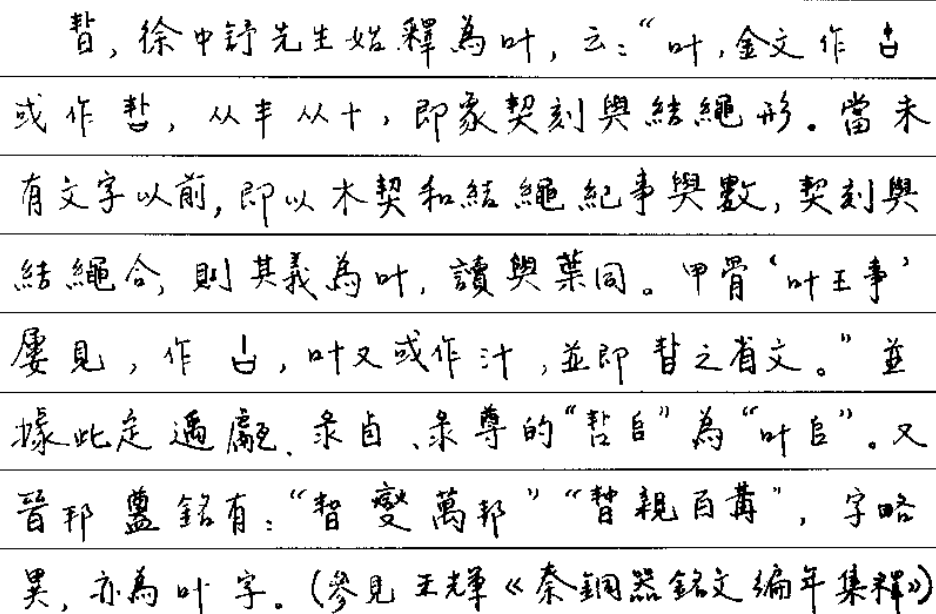 ，徐中舒先生始釋為叶，云：“叶，金文作
或作，从丯从十，即象契刻與結繩形。當未
有文字以前，即以木契和結繩紀事與數，契刻與
結繩合，則其義為叶，讀與葉同。甲骨‘叶王事’
屢見，作，叶又或作汁，並即之省文。”並
據此定遇甗、彔卣、彔尊的“𠂤”為“叶𠂤”。又
晉邦𥂴銘有：“燮萬邦”“親百黹”，字略
異，亦為叶字。（參見王輝《秦銅器銘文編年集釋》）